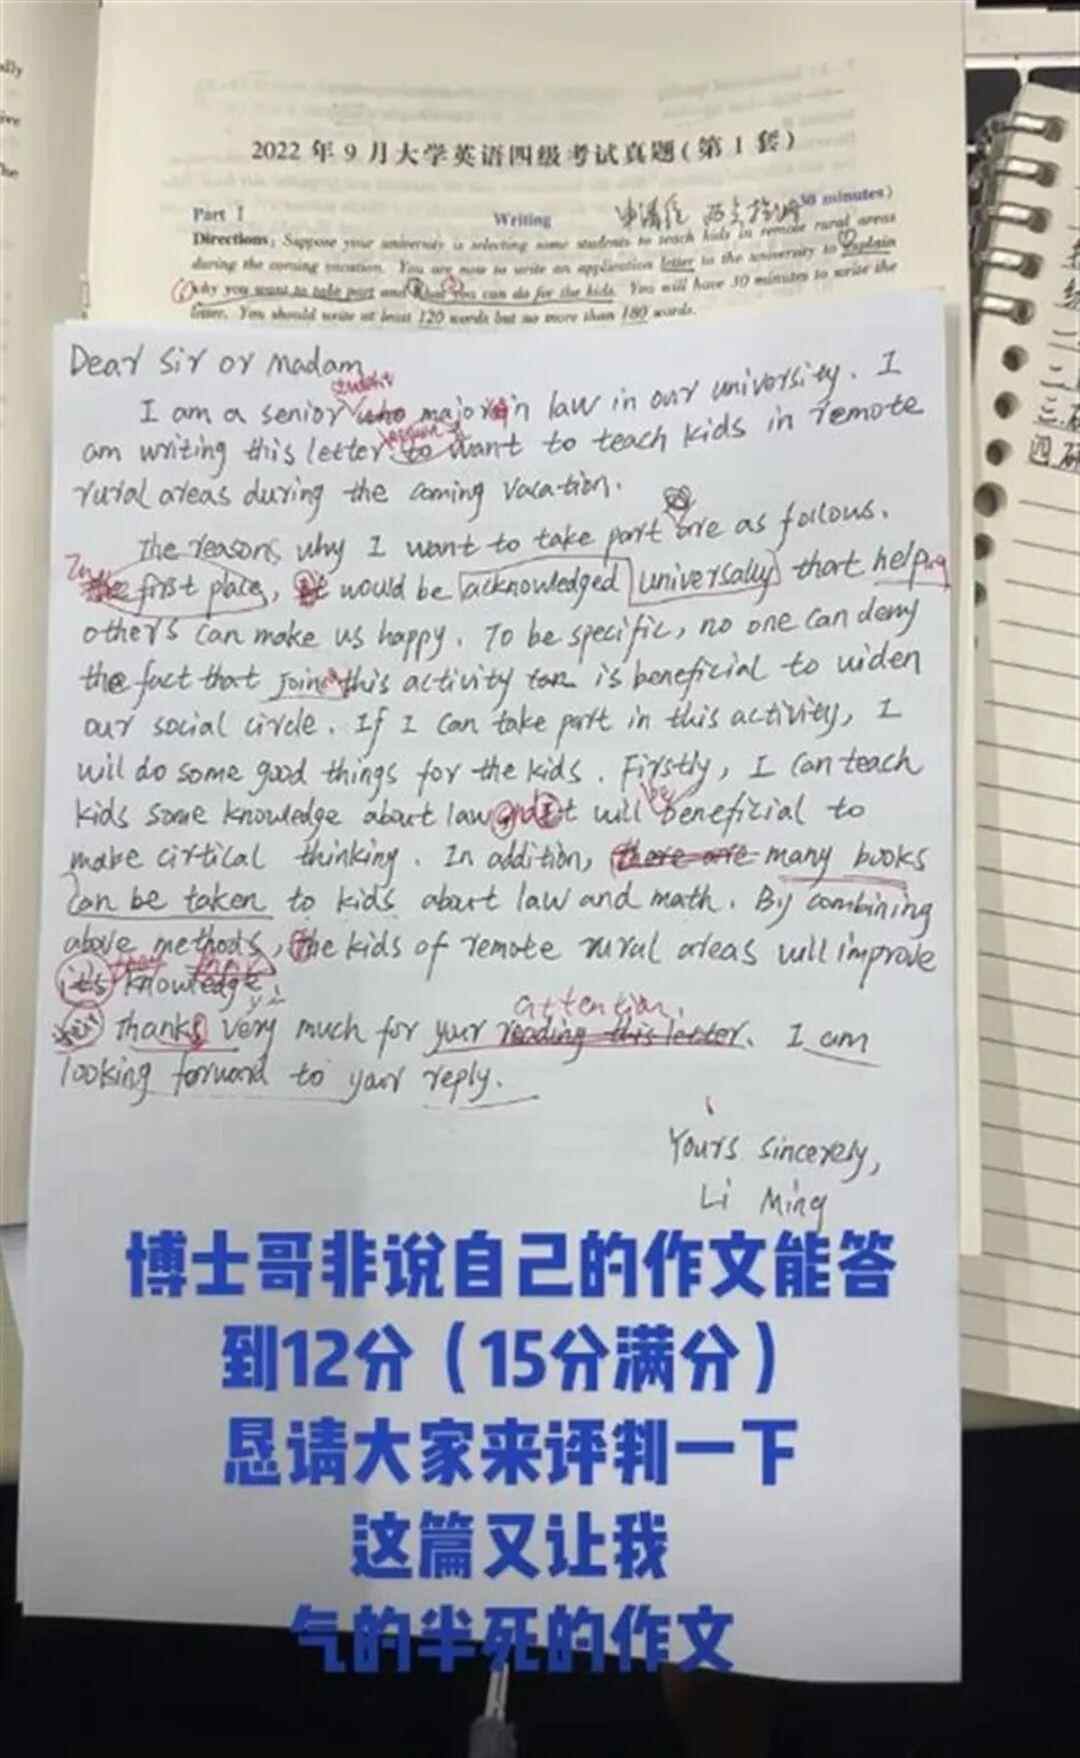 2022 年 9 月大学英语四级考试真题(第 1 套)
Part I Writing 30 minutes)
Directions: Suppose your university is selecting some students to teach kids in remote rural areas
during the coming vacation. You are now to write an application letter to the university to explain
why you want to take part and what you can do for the kids. You will have 30 minutes to write the
letter. You should write at least 120 words but no more than 180 words.
Dear Sir or Madam
student
I am a senior who major in law in our university. I
am writing this letter to want to teach kids in remote
rural areas during the coming vacation.
The reasons why I want to take part are as follows.
In
the first place, it would be acknowledged universally that helping
others can make us happy. To be specific, no one can deny
the fact that join this activity can is beneficial to widen
our social circle. If I can take part in this activity, I
wil do some good things for the kids. Firstly, I can teach
be
kids some knowledge about law and It will beneficial to
make cirtical thinking. In addition, there are many books
can be taken to kids about law and math. By combining
above methods, the kids of remote rural areas will improve
their
its knowledge.
attention.
Thanks very much for your reading this letter. I am
looking forward to your reply.
Yours sincerely,
Li Ming
博士哥非说自己的作文能答
到12分（15分满分）
恳请大家来评判一下
这篇又让我
气的半死的作文